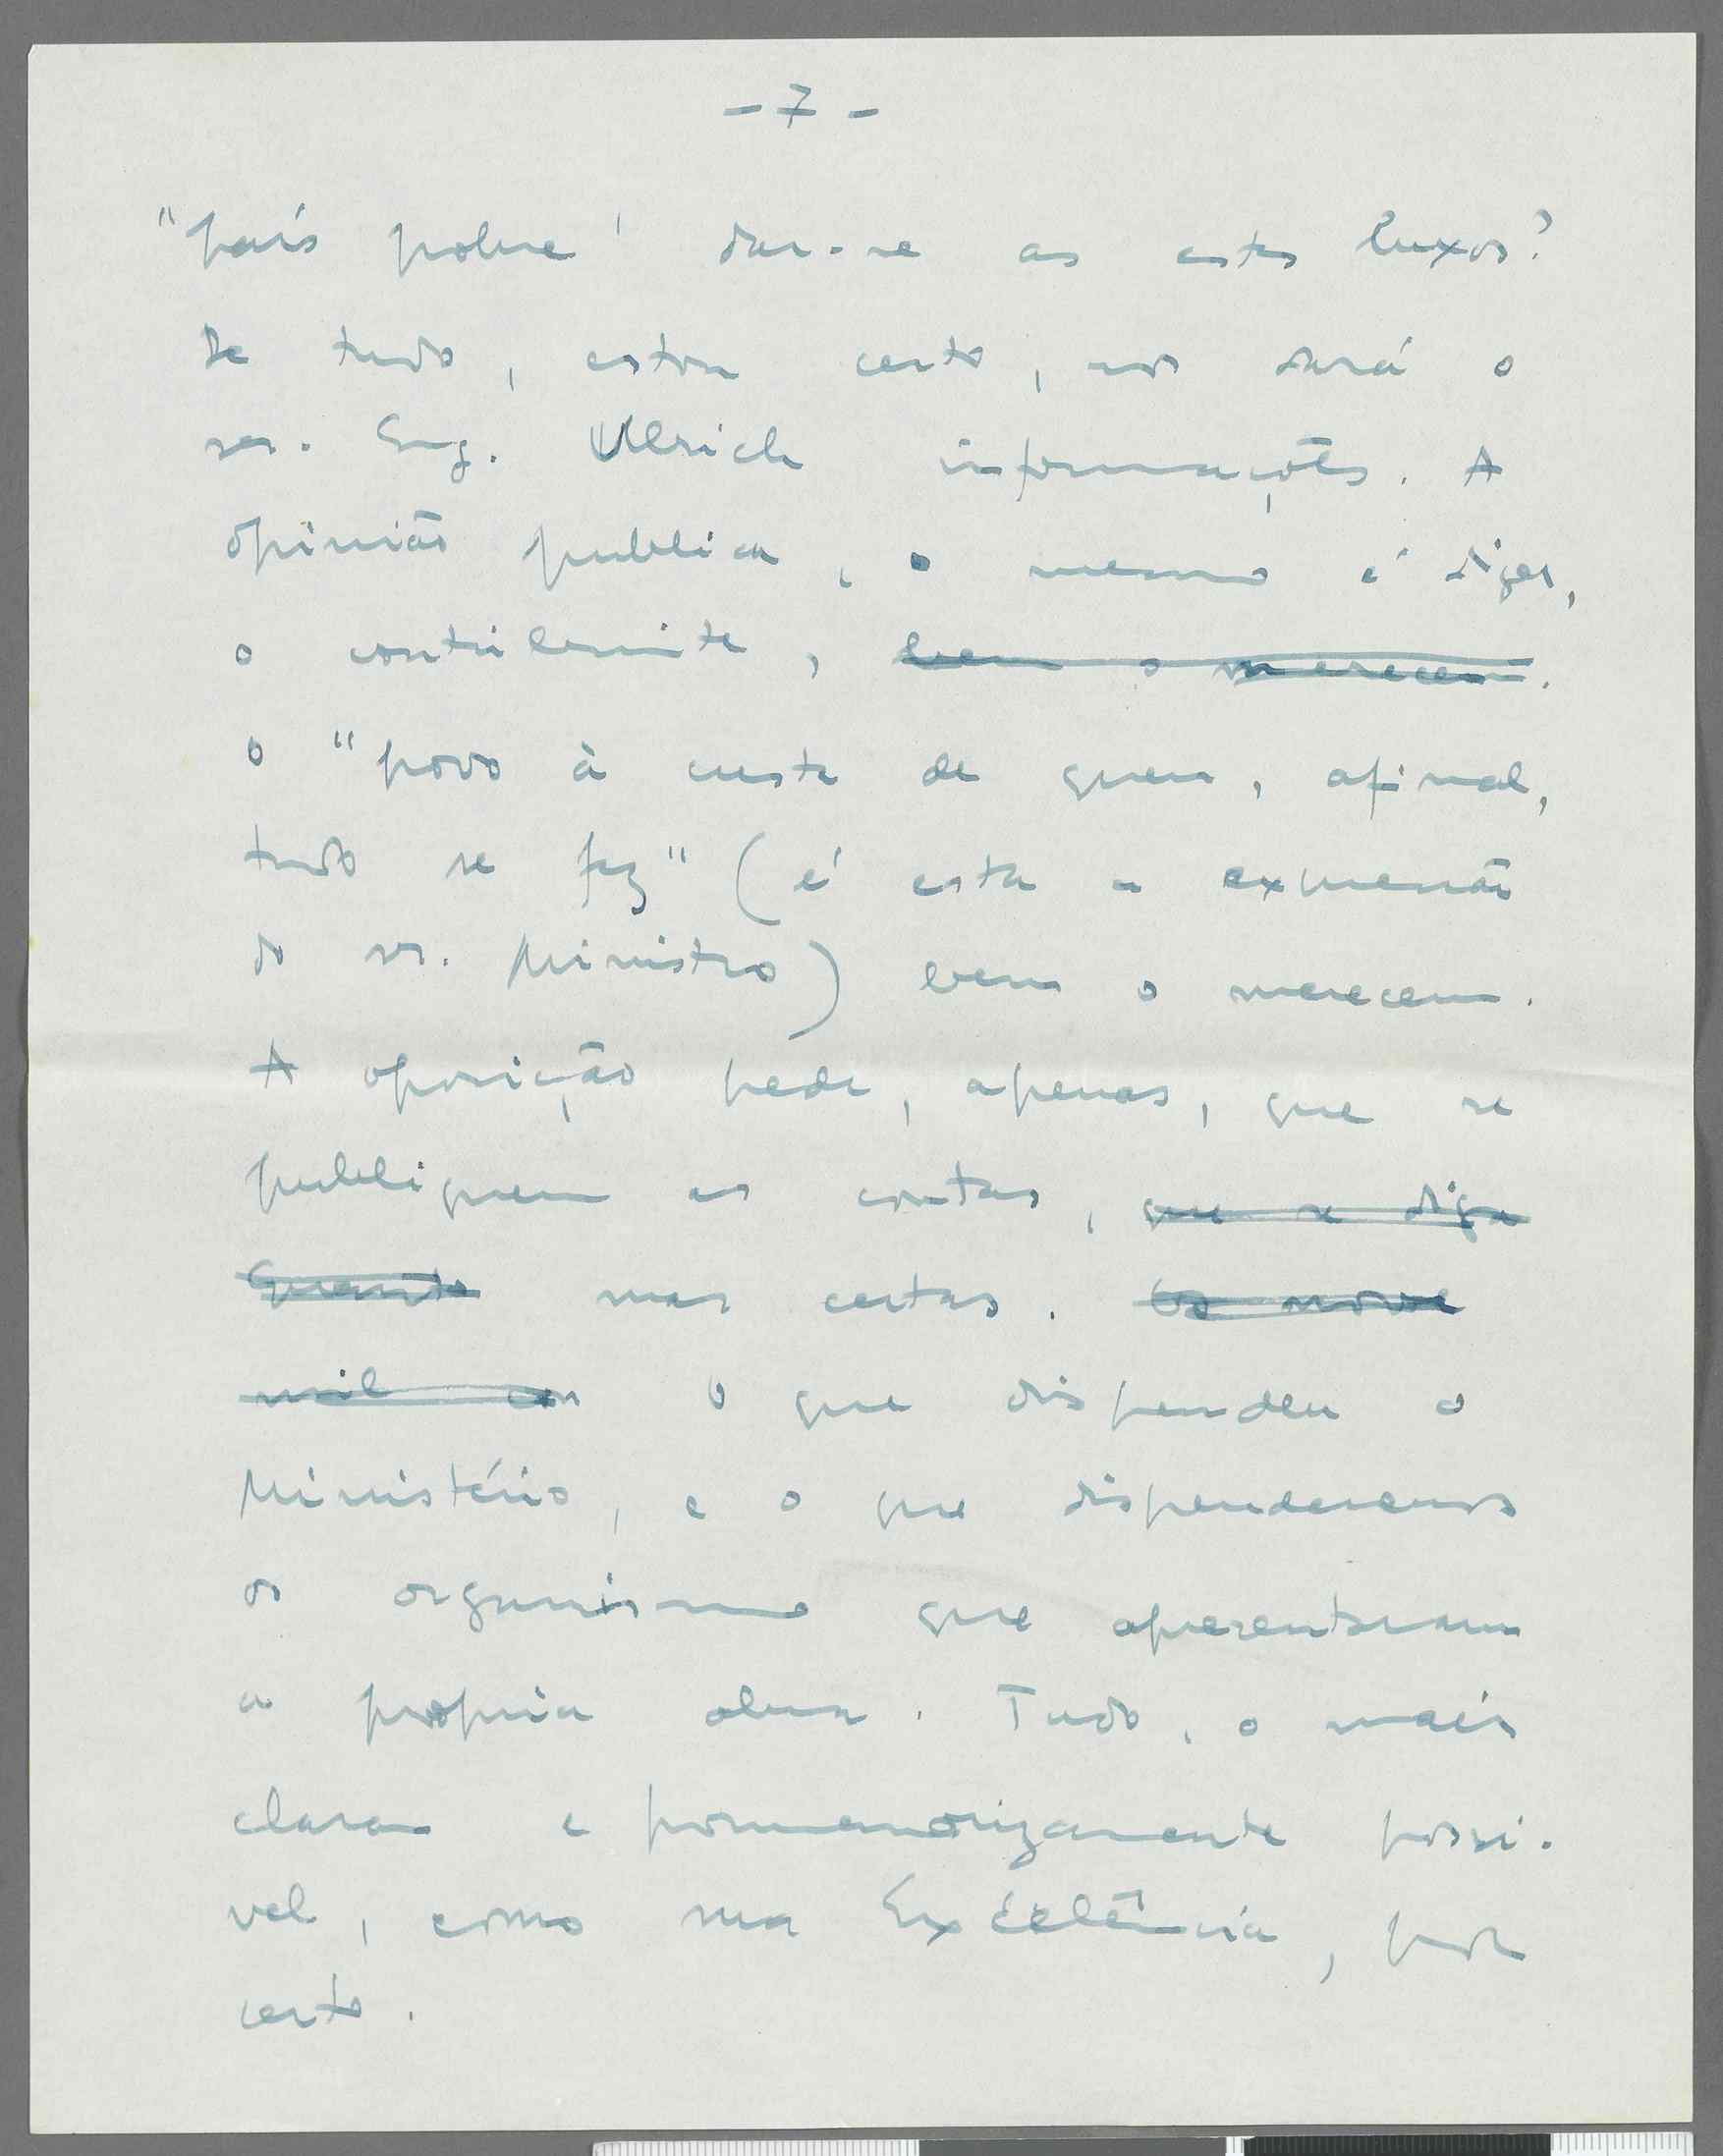 - 7 -
"país pobre" dar-se as estes luxos?
De tudo, estou certo, nos dará o
sr. Eng. Ulrich informações. A
opinião publica, o mesmo é dizer,
o contribuinte, bem o merecem.
O "povo à custa de quem, afinal,
tudo se faz" (é esta a expressão
do sr. Ministro) bem o merecem.
A oposição pede, apenas, que se
publiquem as contas, que se diga
quanto mas certas. Os nove
mil con O que dispendeu o
Ministério, e o que dispenderam
os organismo que apresentaram
a propria obra. Tudo, o mais
clara e pormenorizamente possi-
vel, como sua Excelência, pode
certo.